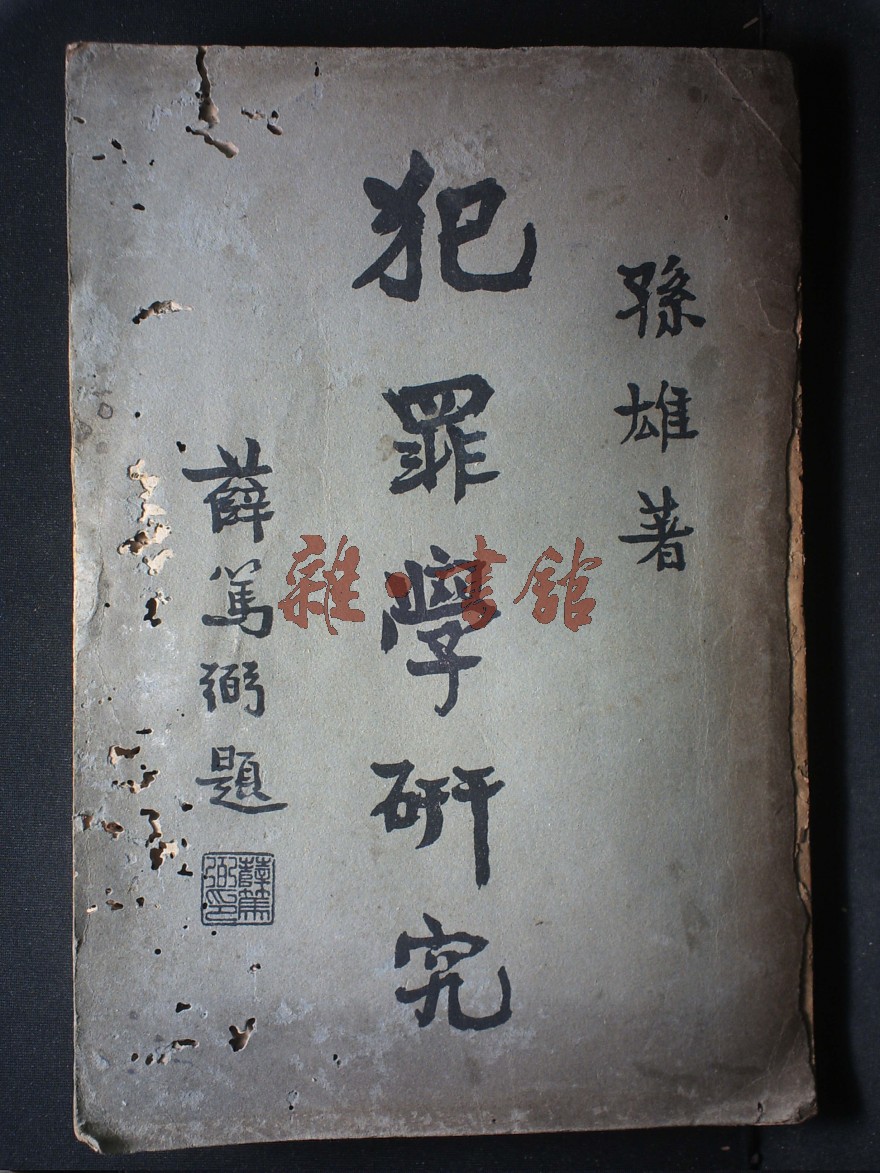 孫雄著
犯罪學研究
薛篤弼題
薛篤弼印
雜·書館